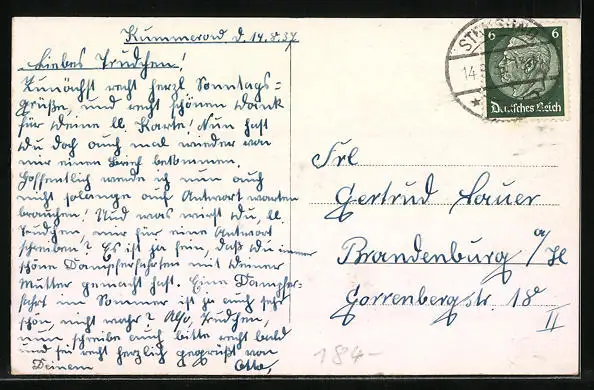 Kummerow d. 14.8.37
Liebes Trudchen!
Zunächst recht herzl. Sonntags=
grüße, und recht schönen Dank
für Deine lb. Karte! Nun hast
Du doch auch mal wieder von
mir einen Brief bekommen.
Hoffentlich werde ich nun auch
nicht solange auf Antwort warten
brauchen! Und was meinst Du, lb.
Trudchen, mir für eine Antwort
schreiben? Es ist ja fein, daß Du immer
schöne Dampferfahrten mit Deiner
Mutter gemacht hast. Eine Dampfer-
fahrt im Sommer ist ja auch sehr
schön, nicht wahr? Also, Trudchen,
nun schreibe auch bitte recht bald
und sei recht herzlich gegrüßt von
Deinem Otto,
6 6
Deutsches Reich
14.8
Frl
Gertrud Lauer
Brandenburg a/H
Gorrenbergstr. 18
II
184-